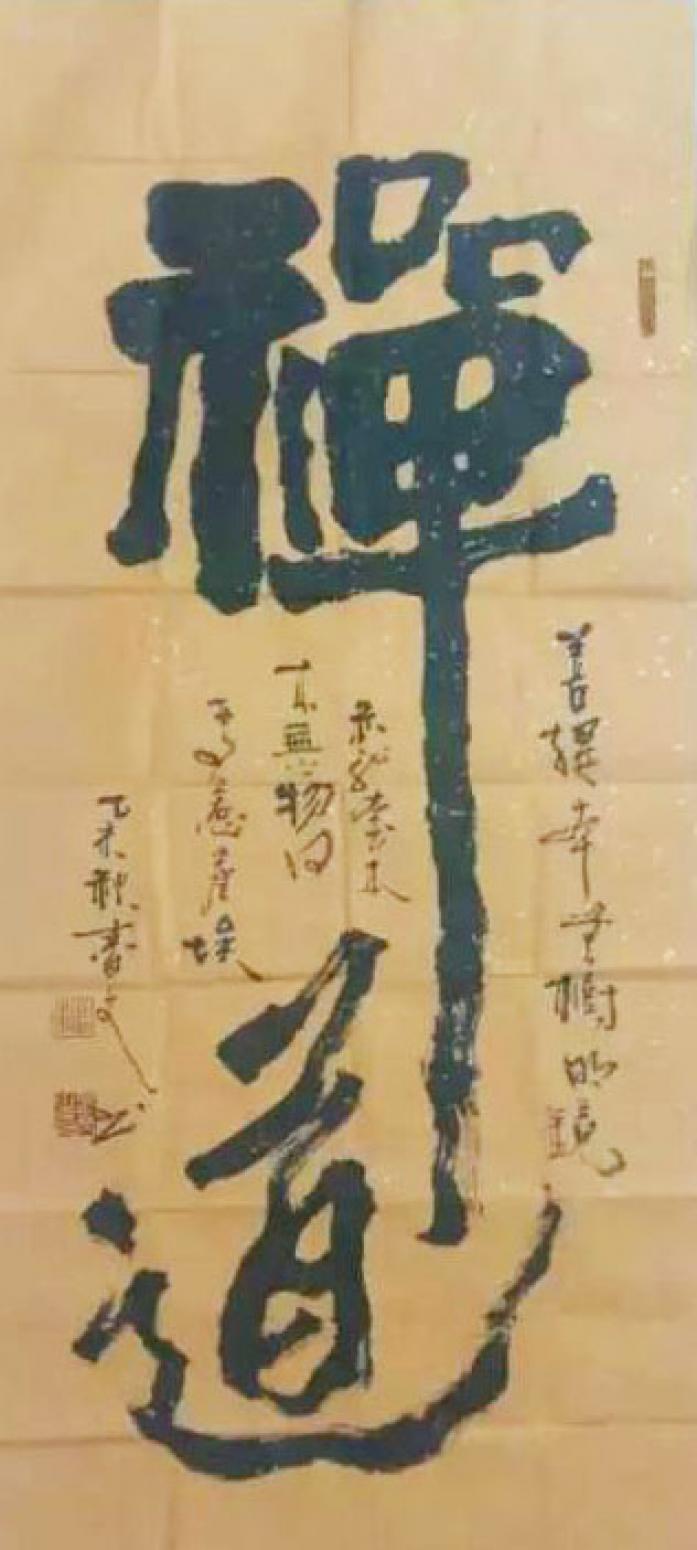 禪道
菩提本無樹明鏡
亦非臺本
來無一物何
處惹塵埃
乙未秋書